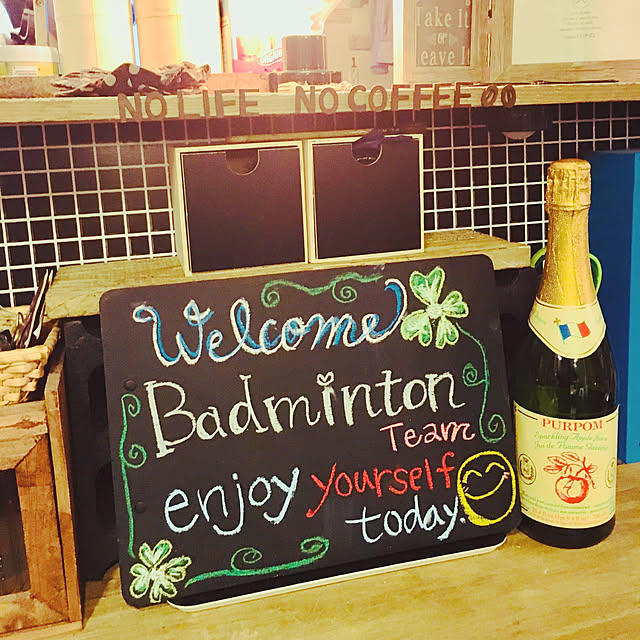 Take It
or
Leave It
NO LIFE NO COFFEE
Welcome
Badminton
Team
enjoy yourself
today.
PURPOM
Sparkling Apple Juice
Jus de Pomme Gazeifie